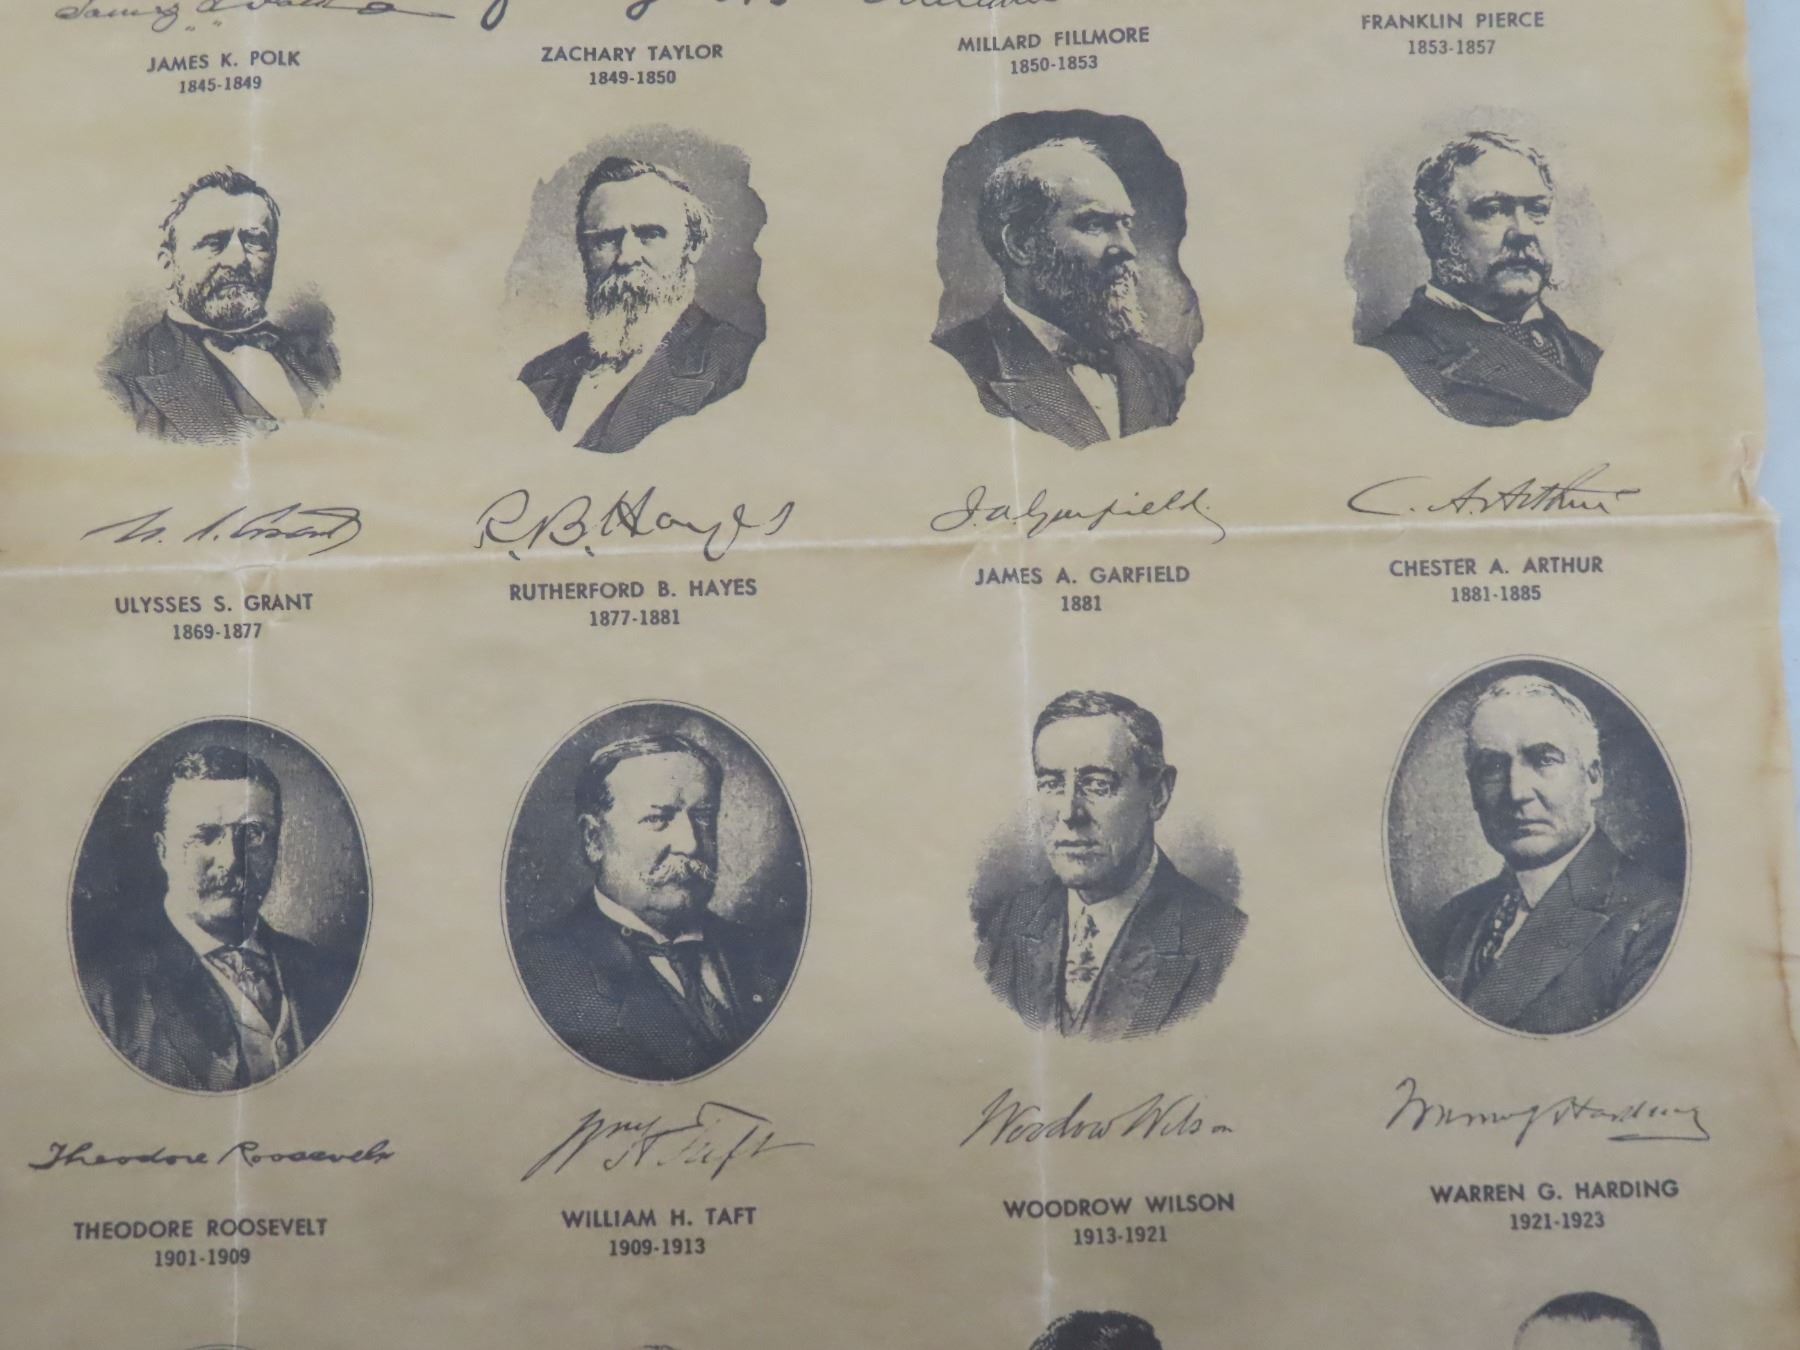 JAMES K. POLK
1845-1849
ZACHARY TAYLOR
1849-1850
MILLARD FILLMORE
1850-1853
FRANKLIN PIERCE
1853-1857
U. S. Grant
R. B. Hayes
J. A. Garfield
C. A. Arthur
ULYSSES S. GRANT
1869-1877
RUTHERFORD B. HAYES
1877-1881
JAMES A. GARFIELD
1881
CHESTER A. ARTHUR
1881-1885
Theodore Roosevelt
Wm H Taft
Woodrow Wilson
Warren G Harding
THEODORE ROOSEVELT
1901-1909
WILLIAM H. TAFT
1909-1913
WOODROW WILSON
1913-1921
WARREN G. HARDING
1921-1923